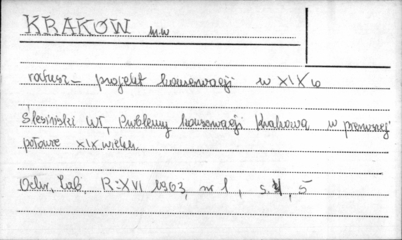 KRAKÓW m.w
ratusz – projekt konserwacji w XIX w
Ślesiński Wł, Problemy konserwacji Krakowa w pierwszej
połowie XIX wieku.
Ochr. Zab., R: XVI 1963, nr 1, s. 5